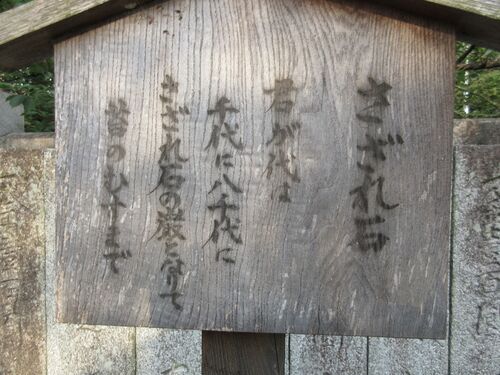 さざれ石
君が代は
千代に八千代に
さざれ石の巌となりて
苔のむすまで